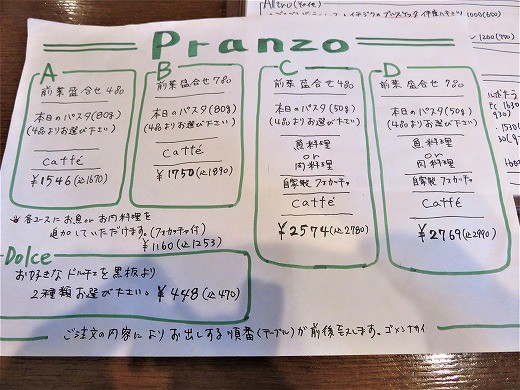 Pranzo
A
前菜盛合せ4品
本日のパスタ(80g)
(4品よりお選び下さい)
Caffé
¥1546(込1670)
B
前菜盛合せ7品
本日のパスタ(80g)
(4品よりお選び下さい)
Caffé
¥1750(込1890)
C
前菜盛合せ4品
本日のパスタ(50g)
(4品よりお選び下さい)
魚料理
or
肉料理
自家製フォカッチャ
Caffé
¥2574(込2780)
D
前菜盛合せ7品
本日のパスタ(50g)
(4品よりお選び下さい)
魚料理
or
肉料理
自家製フォカッチャ
Caffé
¥2769(込2990)
各コースにお魚orお肉料理を
追加していただけます。(フォカッチャ付)
¥1160(込1253)
Dolce
お好きなドルチェを黒板より
2種類お選び下さい。¥448(込470)
ご注文の内容によりお出しする順番(テーブル)が前後致します。ゴメンナサイ